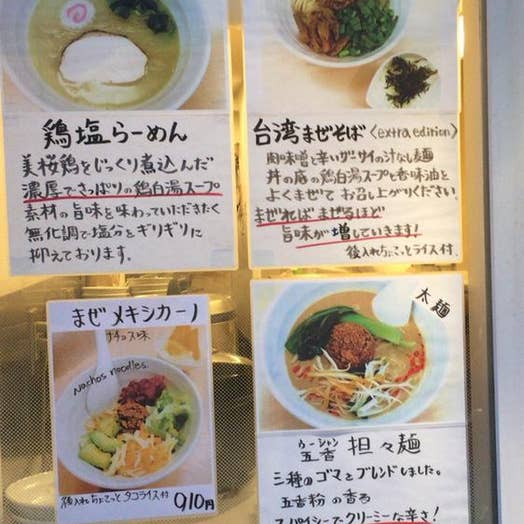 鶏塩らーめん
美桜鶏をじっくり煮込んだ
濃厚でさっぱりの鶏白湯スープ
素材の旨味を味わっていただきたく
無化調で塩分をギリギリに
抑えております。
台湾まぜそば〈extra edition〉
肉味噌と辛いザーサイの汁なし麺
丼の底の鶏白湯スープと香味油と
よくまぜてお召し上がりください。
まぜればまぜるほど
旨味が増していきます!
後入れちょこっとライス付.
まぜメキシカーノ
ナチョス味
Nachos noodles.
後入れちょこっとタコライス付
910円
太麺
ウーシャン
五香 担々麺
三種のゴマとブレンドしました。
五香粉の香る
スパイシーでクリーミーな辛さ!